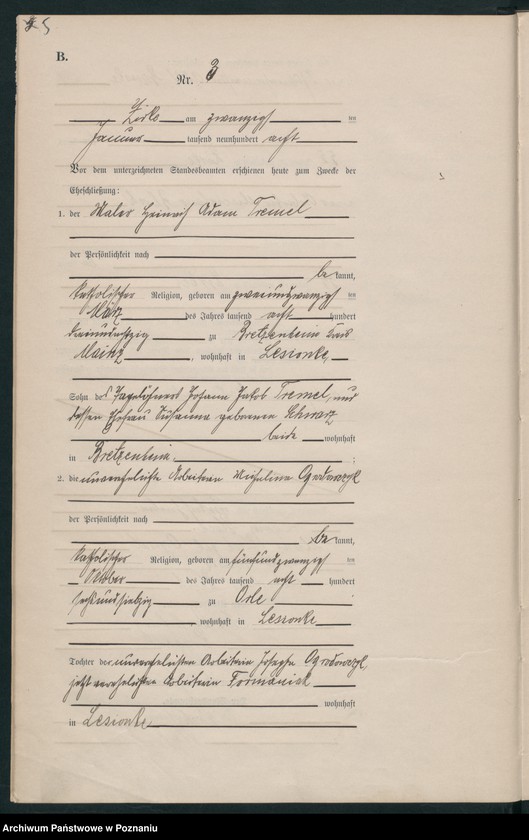 B.
Nr. 3
Zirke am zwanzigsten
Januar tausend neunhundert acht
Vor dem unterzeichneten Standesbeamten erschienen heute zum Zwecke der
Eheschließung:
1. der Maler Heinrich Adam Tremel
der Persönlichkeit nach
be kannt,
katholischer Religion, geboren am zweiundzwanzigsten
März des Jahres tausend acht hundert
dreiundachtzig zu Bretzenheim
Mainz, wohnhaft in Lesionke
Sohn des Tagelöhners Johann Jakob Tremel und
dessen Ehefrau Susanna geborenen Schwarz
beide wohnhaft
in Bretzenheim ;
2. die unverehelichte Arbeiterin Michalina Ogrodowczyk
der Persönlichkeit nach
be kannt,
katholischer Religion, geboren am fünfundzwanzigsten
Oktober des Jahres tausend acht hundert
sechsundsiebzig zu Orle
, wohnhaft in Lesionke
Tochter der unverehelichten Arbeiterin Josepha Ogrodowczyk,
jetzt verehelichten Arbeiterin Formaniak
wohnhaft
in Lesionke
Archiwum Państwowe w Poznaniu